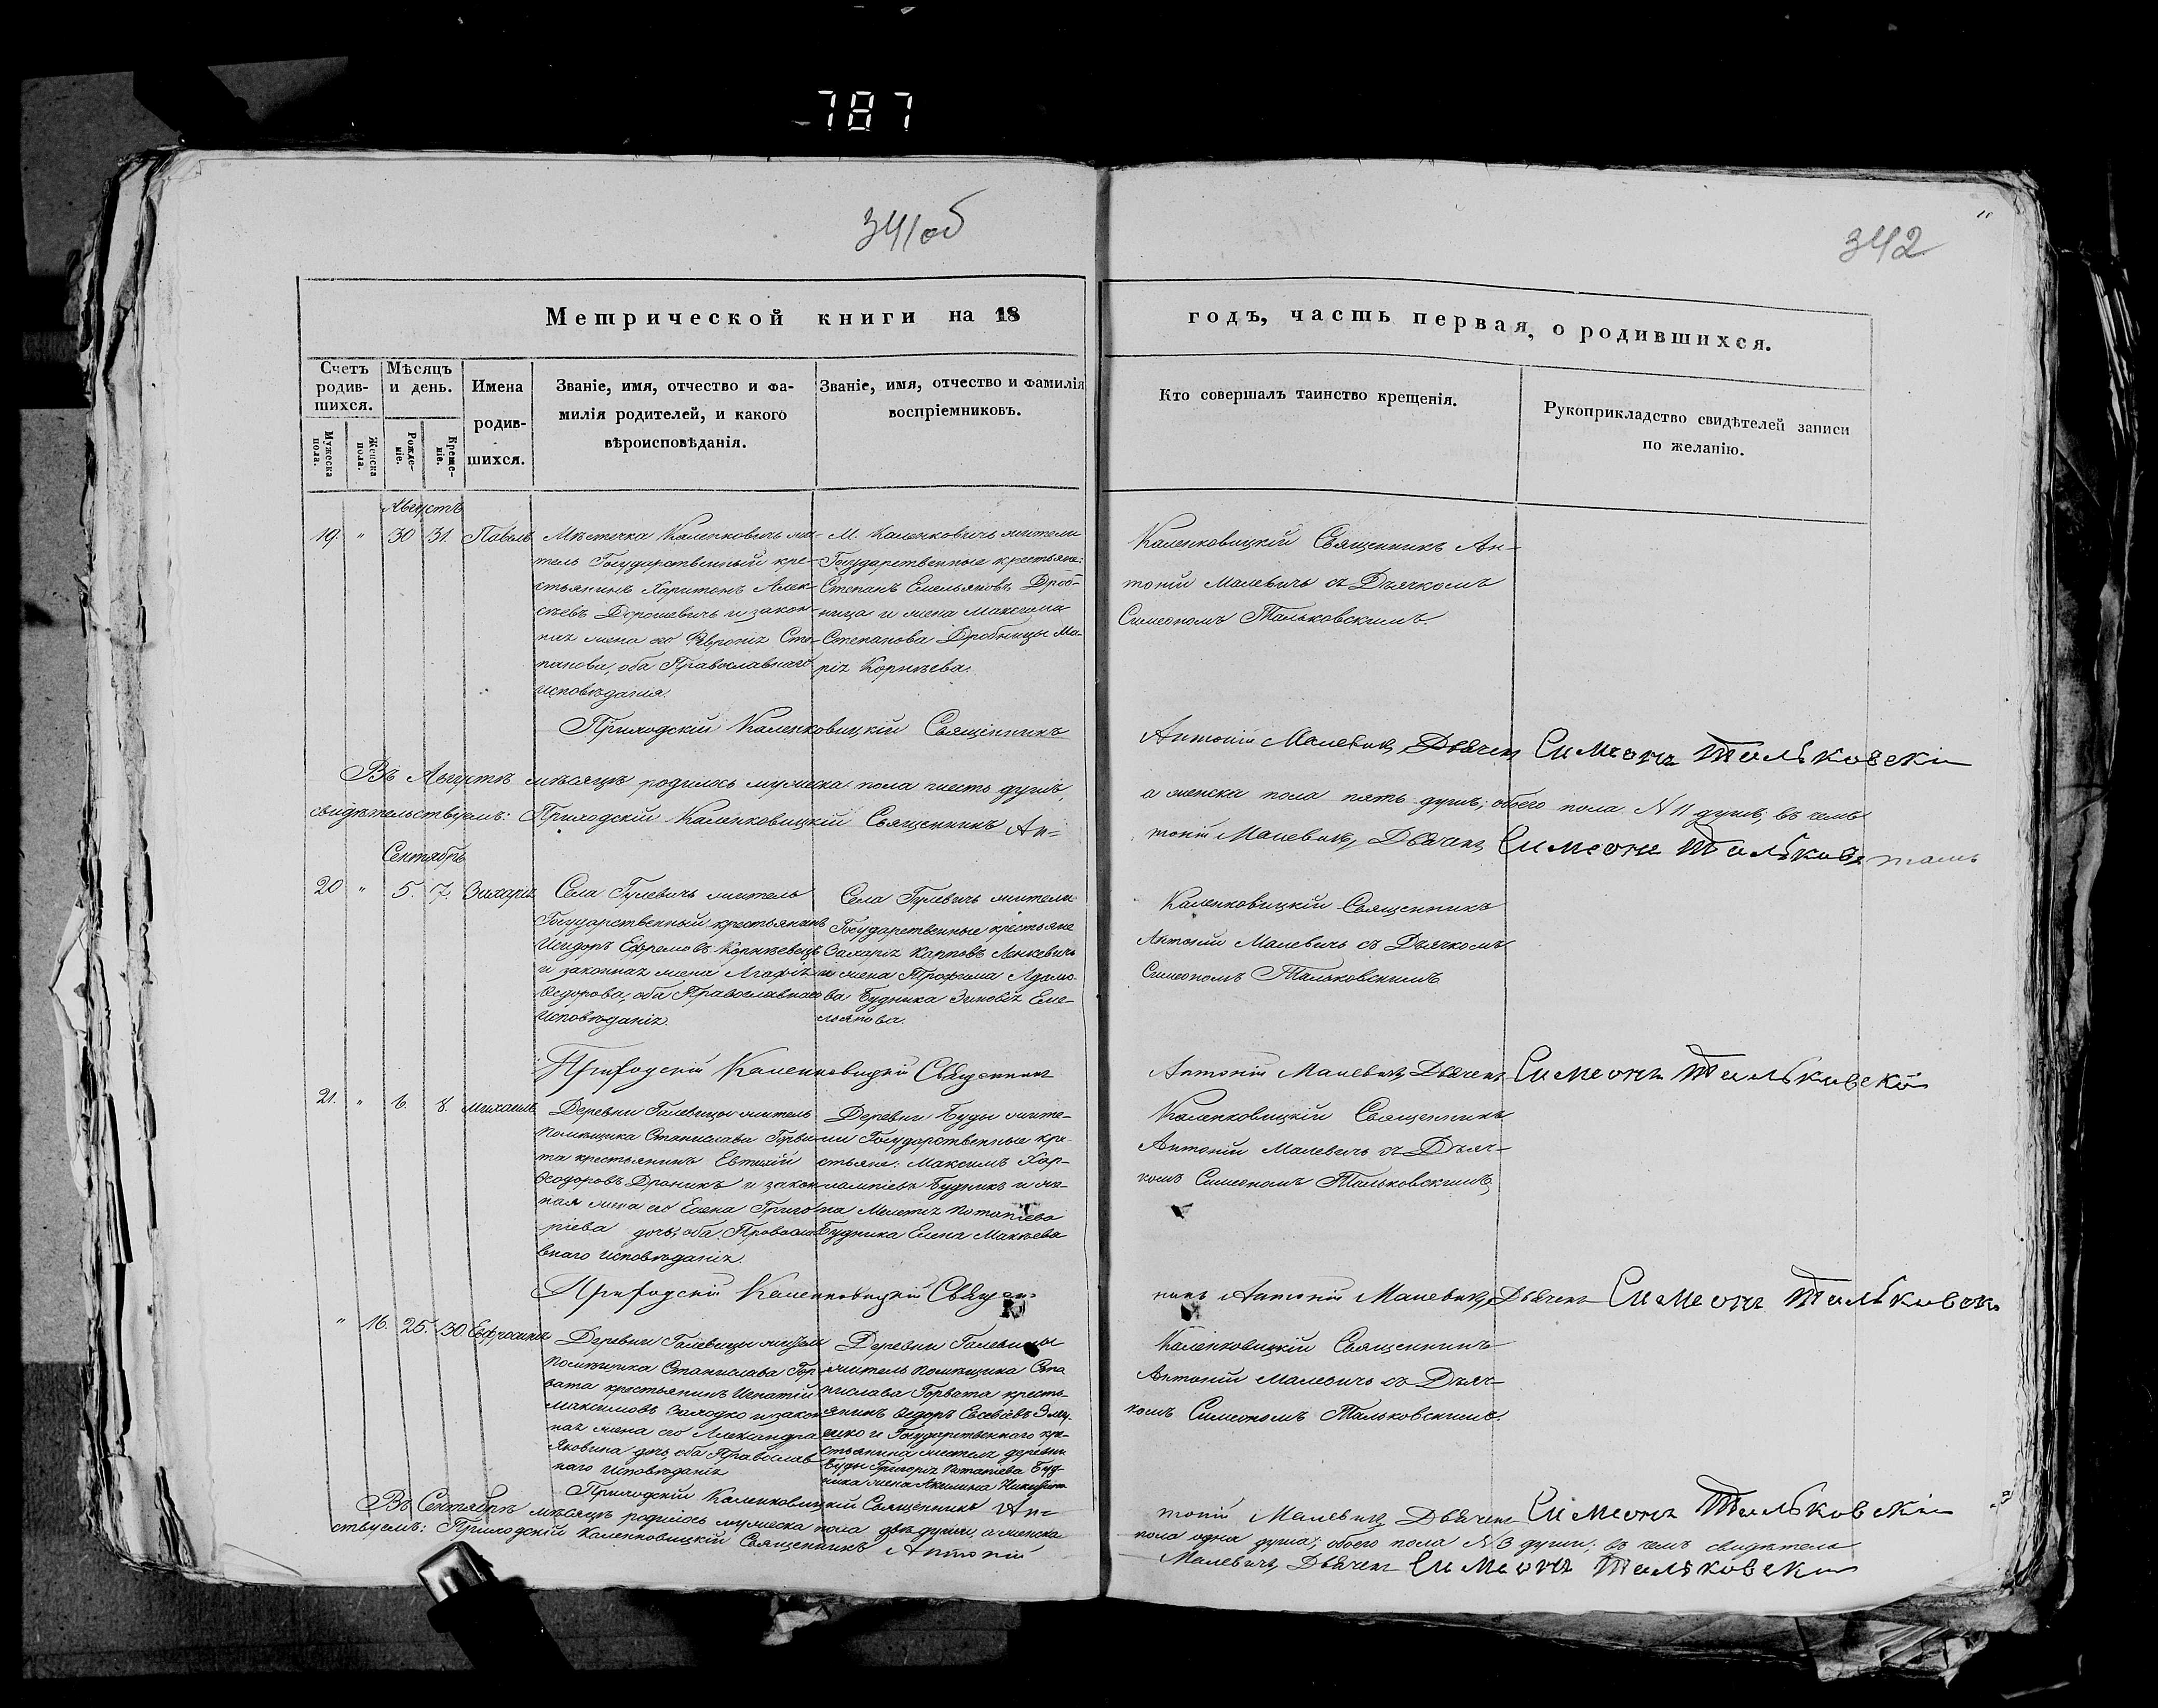 787
341об
342
Метрической книги на 18
годъ, часть первая, о родившихся.
Счетъ родив-шихся.
Мужеска пола.
Женска пола.
Мѣсяцъ и день.
Рожде-ніе.
Креще-ніе.
Имена родив-шихся.
Званіе, имя, отчество и фа-
милія родителей, и какого
вѣроисповѣданія.
Званіе, имя, отчество и фамилія
воспріемниковъ.
Кто совершалъ таинство крещенія.
Рукоприкладство свидѣтелей записи
по желанію.
Августъ
19. " 30 31. Павелъ
Мѣстечка Каленковичь жи-
тель Государственный кре-
стьянинъ Харитонъ Алек-
сѣевъ Дорошевичь и закон-
ная жена его Феврония Сте-
панова, оба Православнаго
исповѣдания.
М. Каленковичь жители
Государственные крестьяне:
Степанъ Емельяновъ Дроб-
ница и жена Максима
Степанова Дробницы Ма-
рія Корнѣева.
Каленковицкій Священникъ Ан-
тоній Малевичь съ Дьячкомъ
Симеономъ Тальковскимъ
Приходскій Каленковицкій Священникъ
Антоній Малевичь, Дьячекъ Симеонъ Тальковскій
Въ Августѣ мѣсяцѣ родилось мужеска пола шесть душъ,
а женска пола пять душъ; обоего пола N 11 душъ, въ чемъ
свидѣтельствуемъ: Приходскій Каленковицкій Священникъ Ан-
тоній Малевичь, Дьячекъ Симеонъ
Сентябрь
20 " 5. 7. Захарія
Села Гулевичь житель
Государственный крестьянинъ
Исидоръ Ефремовъ Корнѣевецъ
и законная жена Агафія
Ѳедорова, оба Православнаго
Исповѣданія.
Села Гулевичь жители
Государственные крестьяне
Захарія Карповъ Ленкевичь
и жена Трофима Адамо-
ва Будника Зиновія Еме-
льянова.
Каленковицкій Священникъ
Антоній Малевичь съ Дьячкомъ
Симеономъ Тальковскимъ
Приходскій Каленковицкій Священникъ
Антоній Малевичь, Дьячекъ Симеонъ Тальковскій
21. " 6. 8. Михаилъ
Деревни Галевицы житель
Помѣщика Станислава Горва-
та крестьянинъ Евтихій
Ѳеодоровъ Дроникъ и закон-
ная жена его Елена Григо-
ріева дочь; оба Правосла-
внаго исповѣданія.
Деревни Буды жите-
ли Государственные кре-
стьяне: Максимъ Хар-
лампіевъ Будникъ и же-
на Мелетія Потапіева
Будника Елена Макѣева
Каленковицкій Священникъ
Антоній Малевичь съ Дьяч-
комъ Симеономъ Тальковскимъ
Приходскій Каленковицкій Священ-
никъ Антоній Малевичь, Дьячекъ Симеонъ Тальковскій
" 16. 25. 30 Евфросинія
Деревни Галевицы житель
Помѣщика Станислава Гор-
вата крестьянинъ Игнатій
Максимовъ Заходко и закон-
ная жена его Александра
Яковина дочь, оба Православ
наго Исповѣданія
Деревни Галевицы
житель помѣщика Ста
нислава Горвата кресть-
янинъ Ѳедоръ Евсевіевъ
и Государственнаго кре-
стьянина жителя деревни
Буды Григорія Потапіева Буд-
ника жена Акилина
Каленковицкій Священникъ
Антоній Малевичь съ Дьяч-
комъ Симеономъ Тальковскимъ.
Приходскій Каленковицкій Священникъ Ан-
тоній Малевичь, Дьячекъ Симеонъ Тальковскій
Въ Сентябрѣ мѣсяцѣ родилось мужеска пола двѣ души, а женска
пола одна душа; обоего пола N 3 души; въ чемъ свидѣтель
ствуемъ: Приходскій Каленковицкій Священникъ Антоній
Малевичь, Дьячекъ Симеонъ Тальковскій